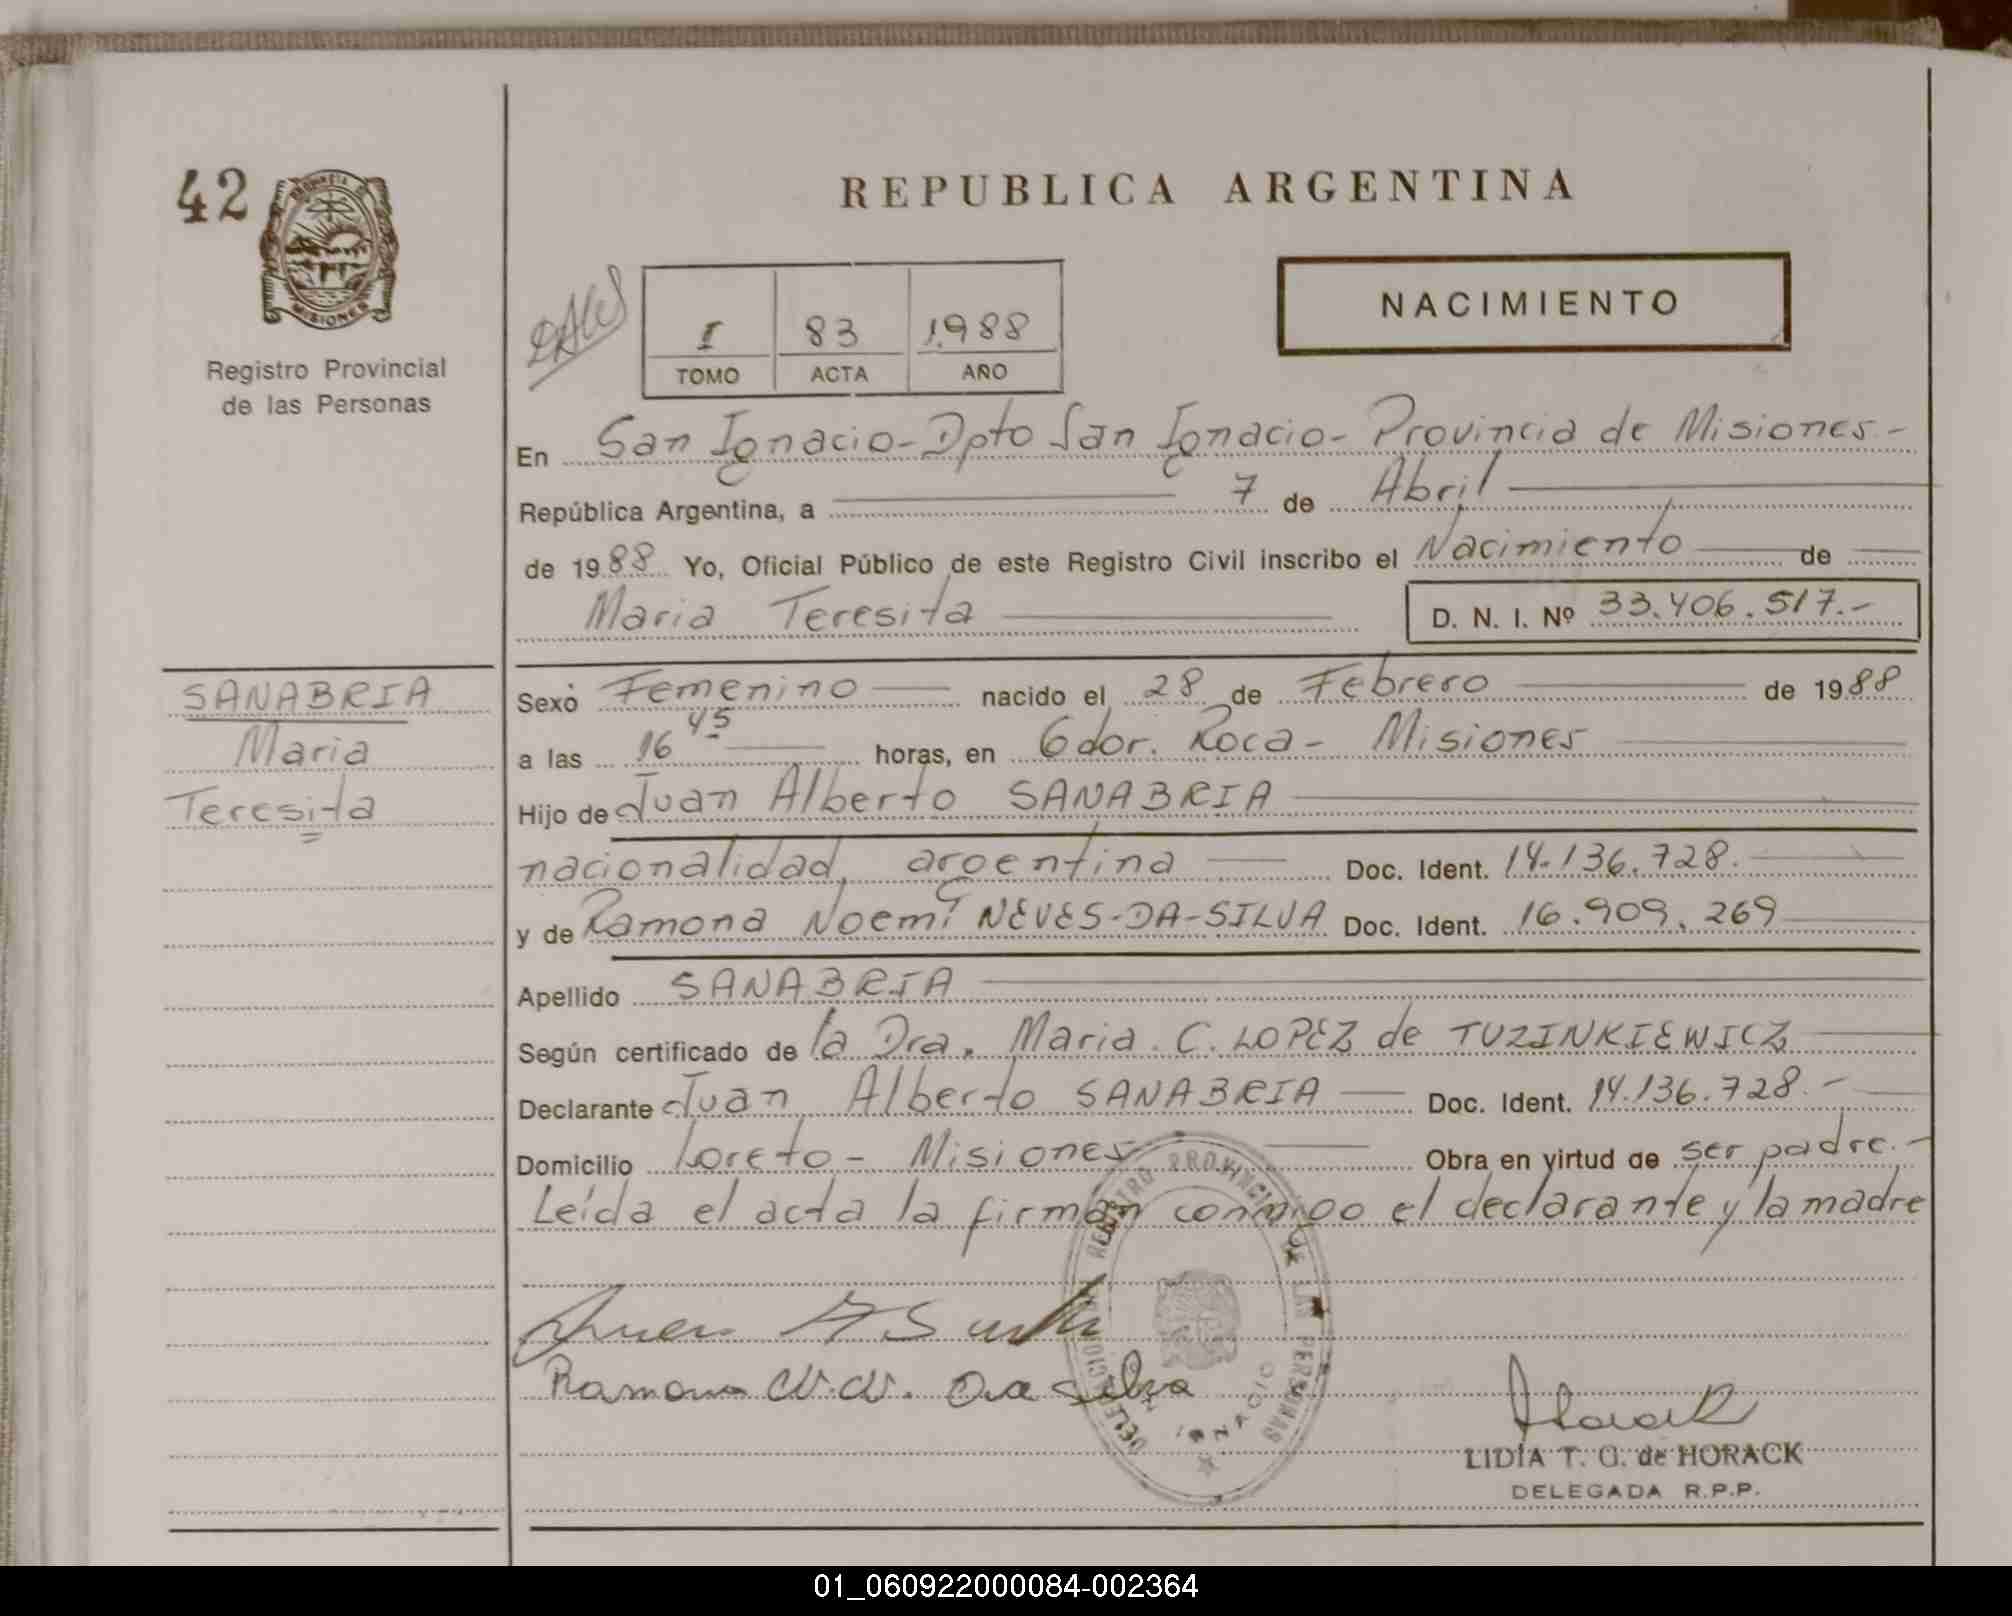 42
PROVINCIA DE
MISIONES
Registro Provincial
de las Personas
REPUBLICA ARGENTINA
NACIMIENTO
I 83 1.988
TOMO ACTA AÑO
En San Ignacio - Dpto San Ignacio - Provincia de Misiones.-
República Argentina, a 7 de Abril
de 1988 Yo, Oficial Público de este Registro Civil inscribo el Nacimiento de
Maria Teresita D. N. I. Nº 33.406.517.-
SANABRIA
Maria
Teresita
Sexo Femenino nacido el 28 de Febrero de 1988
a las 16 45 horas, en Gdor. Roca - Misiones
Hijo de Juan Alberto SANABRIA
nacionalidad argentina Doc. Ident. 14.136.728.
y de Ramona Noemí NEVES-DA-SILVA Doc. Ident. 16.909.269
Apellido SANABRIA
Según certificado de la Dra. Maria C. LOPEZ de TUZINKIEWICZ
Declarante Juan Alberto SANABRIA Doc. Ident. 14.136.728.-
Domicilio Loreto - Misiones Obra en virtud de ser padre.-
Leída el acta la firman conmigo el declarante y la madre
REGISTRO PROVINCIAL DE LAS PERSONAS
IGNACIO
Juan A
Ramona N. N. Da Silva
Horack
LIDIA T. G. de HORACK
DELEGADA R.P.P.
01_060922000084-002364